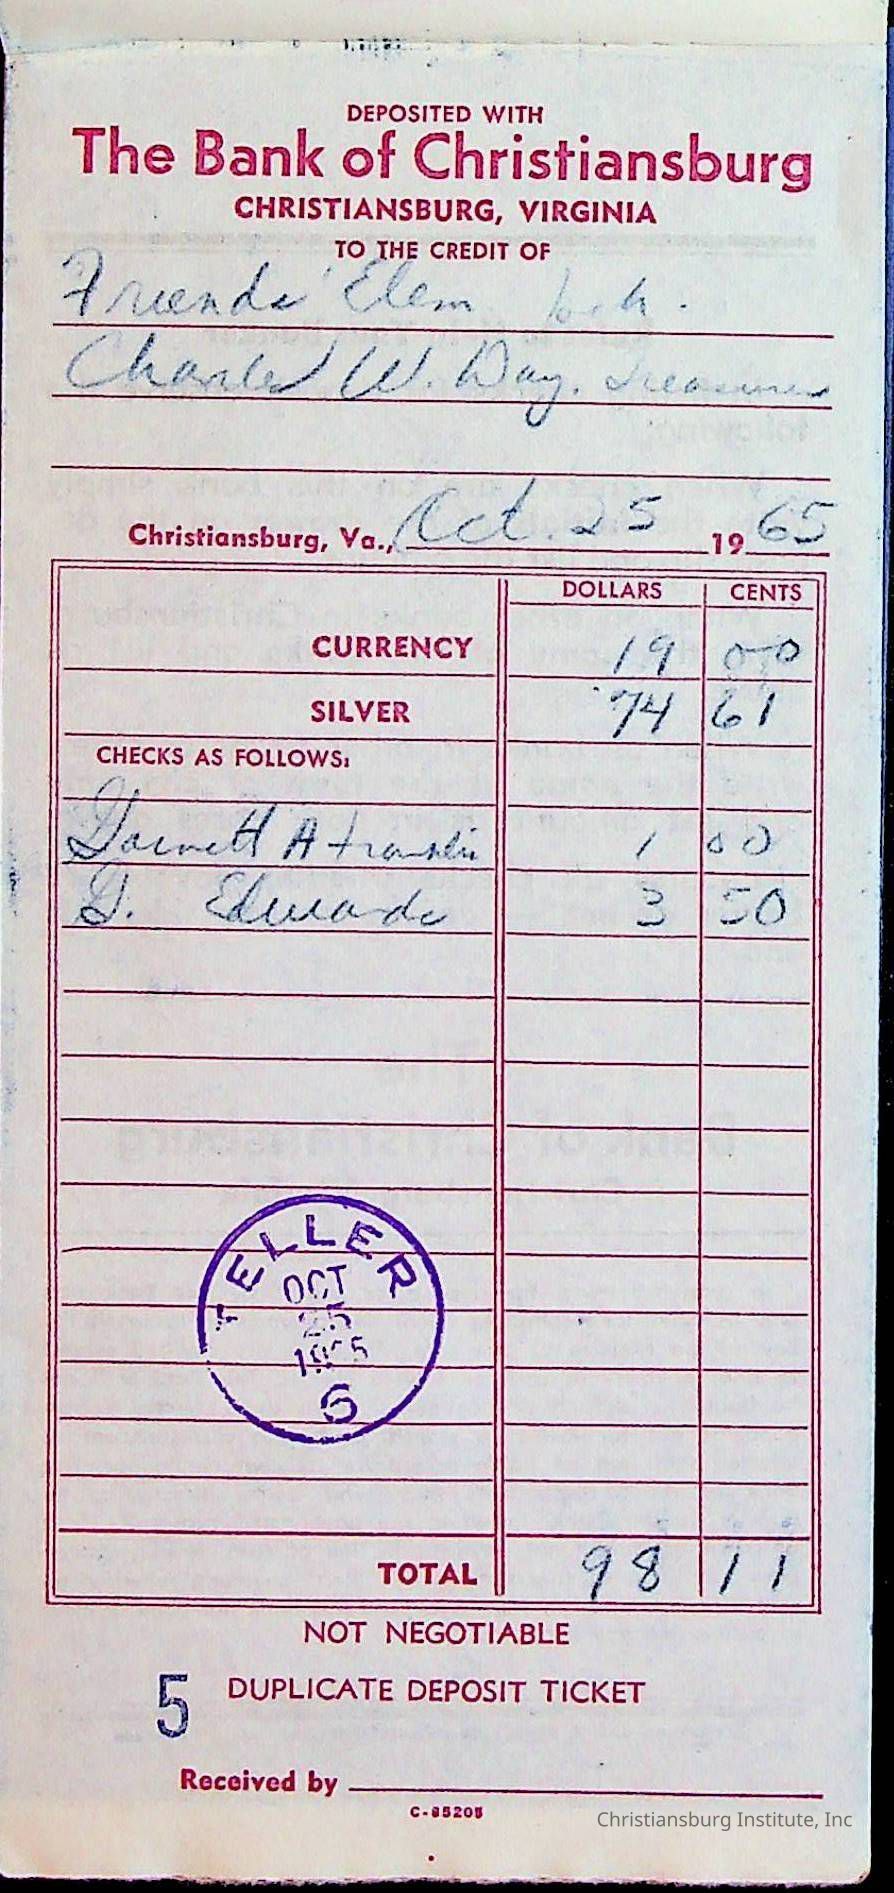 DEPOSITED WITH
The Bank of Christiansburg
CHRISTIANSBURG, VIRGINIA
TO THE CREDIT OF
Friends' Elem Sch.
Charles W. Day. Treasurer
Christiansburg, Va., Oct. 25 1965
DOLLARS CENTS
CURRENCY 19 00
SILVER 74 61
CHECKS AS FOLLOWS:
A Franklin 1 00
D. Edwards 3 50
TELLER
OCT
25
1965
6
TOTAL 98 11
NOT NEGOTIABLE
5 DUPLICATE DEPOSIT TICKET
Received by
C-85205
Christiansburg Institute, Inc